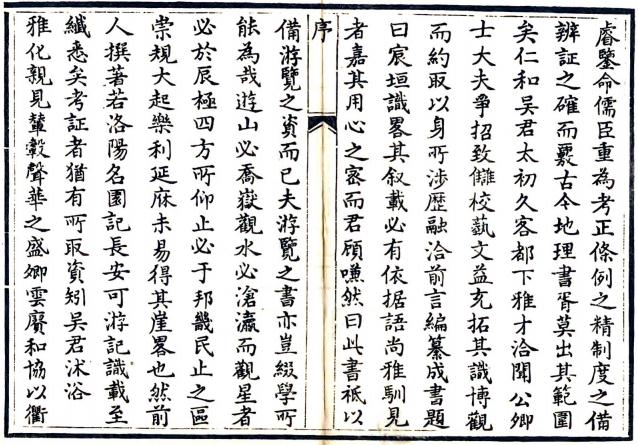 睿鑒命儒臣重為考正條例之精制度之備
辨証之確而覈古今地理書胥莫出其範圍
矣仁和吳君太初久客都下雅才洽聞公卿
士大夫爭招致讎校藝文益充拓其識博觀
而約取以身所涉歴融洽前言編纂成書題
曰宸垣識畧其叙載必有依据語尚雅馴見
者嘉其用心之密而君顧嗛然曰此書祗以
序
備游覽之資而已夫游覽之書亦豈綴學所
能為哉遊山必喬嶽觀水必滄瀛而觀星者
必於辰極四方所仰止必于邦畿民止之區
崇規大起樂利延庥未易得其崖畧也然前
人撰著若洛陽名園記長安可游記識載至
纖悉矣考証者猶有所取資矧吳君沐浴
雅化親見輦轂聲華之盛卿雲賡和協以衢